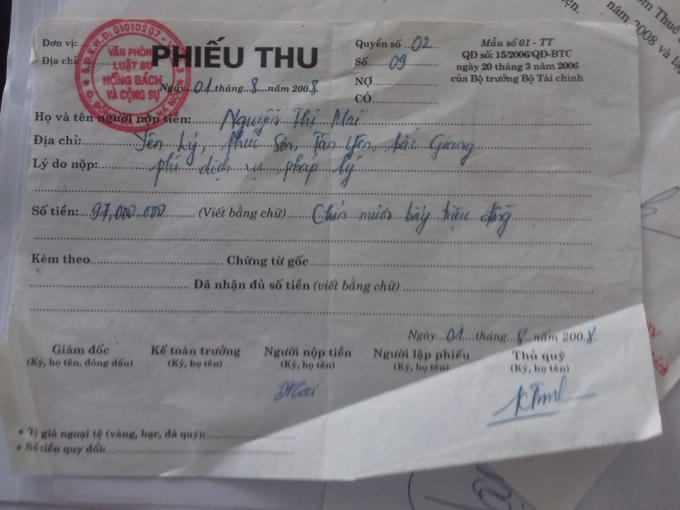 Đơn vị:
Địa chỉ:
S.Đ.K.H.Đ: 01010207
VĂN PHÒNG
LUẬT SƯ
HỒNG BÁCH
VÀ CỘNG SỰ
PHIẾU THU
Ngày 01 tháng 8 năm 2008
Quyển số 02
Số 09
NỢ
CÓ
Mẫu số 01 - TT
QĐ số: 15/2006/QĐ-BTC
ngày 20 tháng 3 năm 2006
của Bộ trưởng Bộ Tài chính
Họ và tên người nộp tiền: Nguyễn Thị Mai
Địa chỉ: Yên Lý, Phúc Sơn, Tân Yên, Bắc Giang
Lý do nộp: phí dịch vụ pháp lý
Số tiền: 97,000.000 (Viết bằng chữ) Chín mươi bảy triệu đồng
Kèm theo Chứng từ gốc
Đã nhận đủ số tiền (viết bằng chữ)
Ngày 01 tháng 8 năm 2008.
Giám đốc Kế toán trưởng Người nộp tiền Người lập phiếu Thủ quỹ
(Ký, họ tên, đóng dấu) (Ký, họ tên) (Ký, họ tên) (Ký, họ tên) (Ký, họ tên)
Mai
+ Tỷ giá ngoại tệ (vàng, bạc, đá quý):
+ Số tiền quy đổi:
Thuế
năm 2008 và